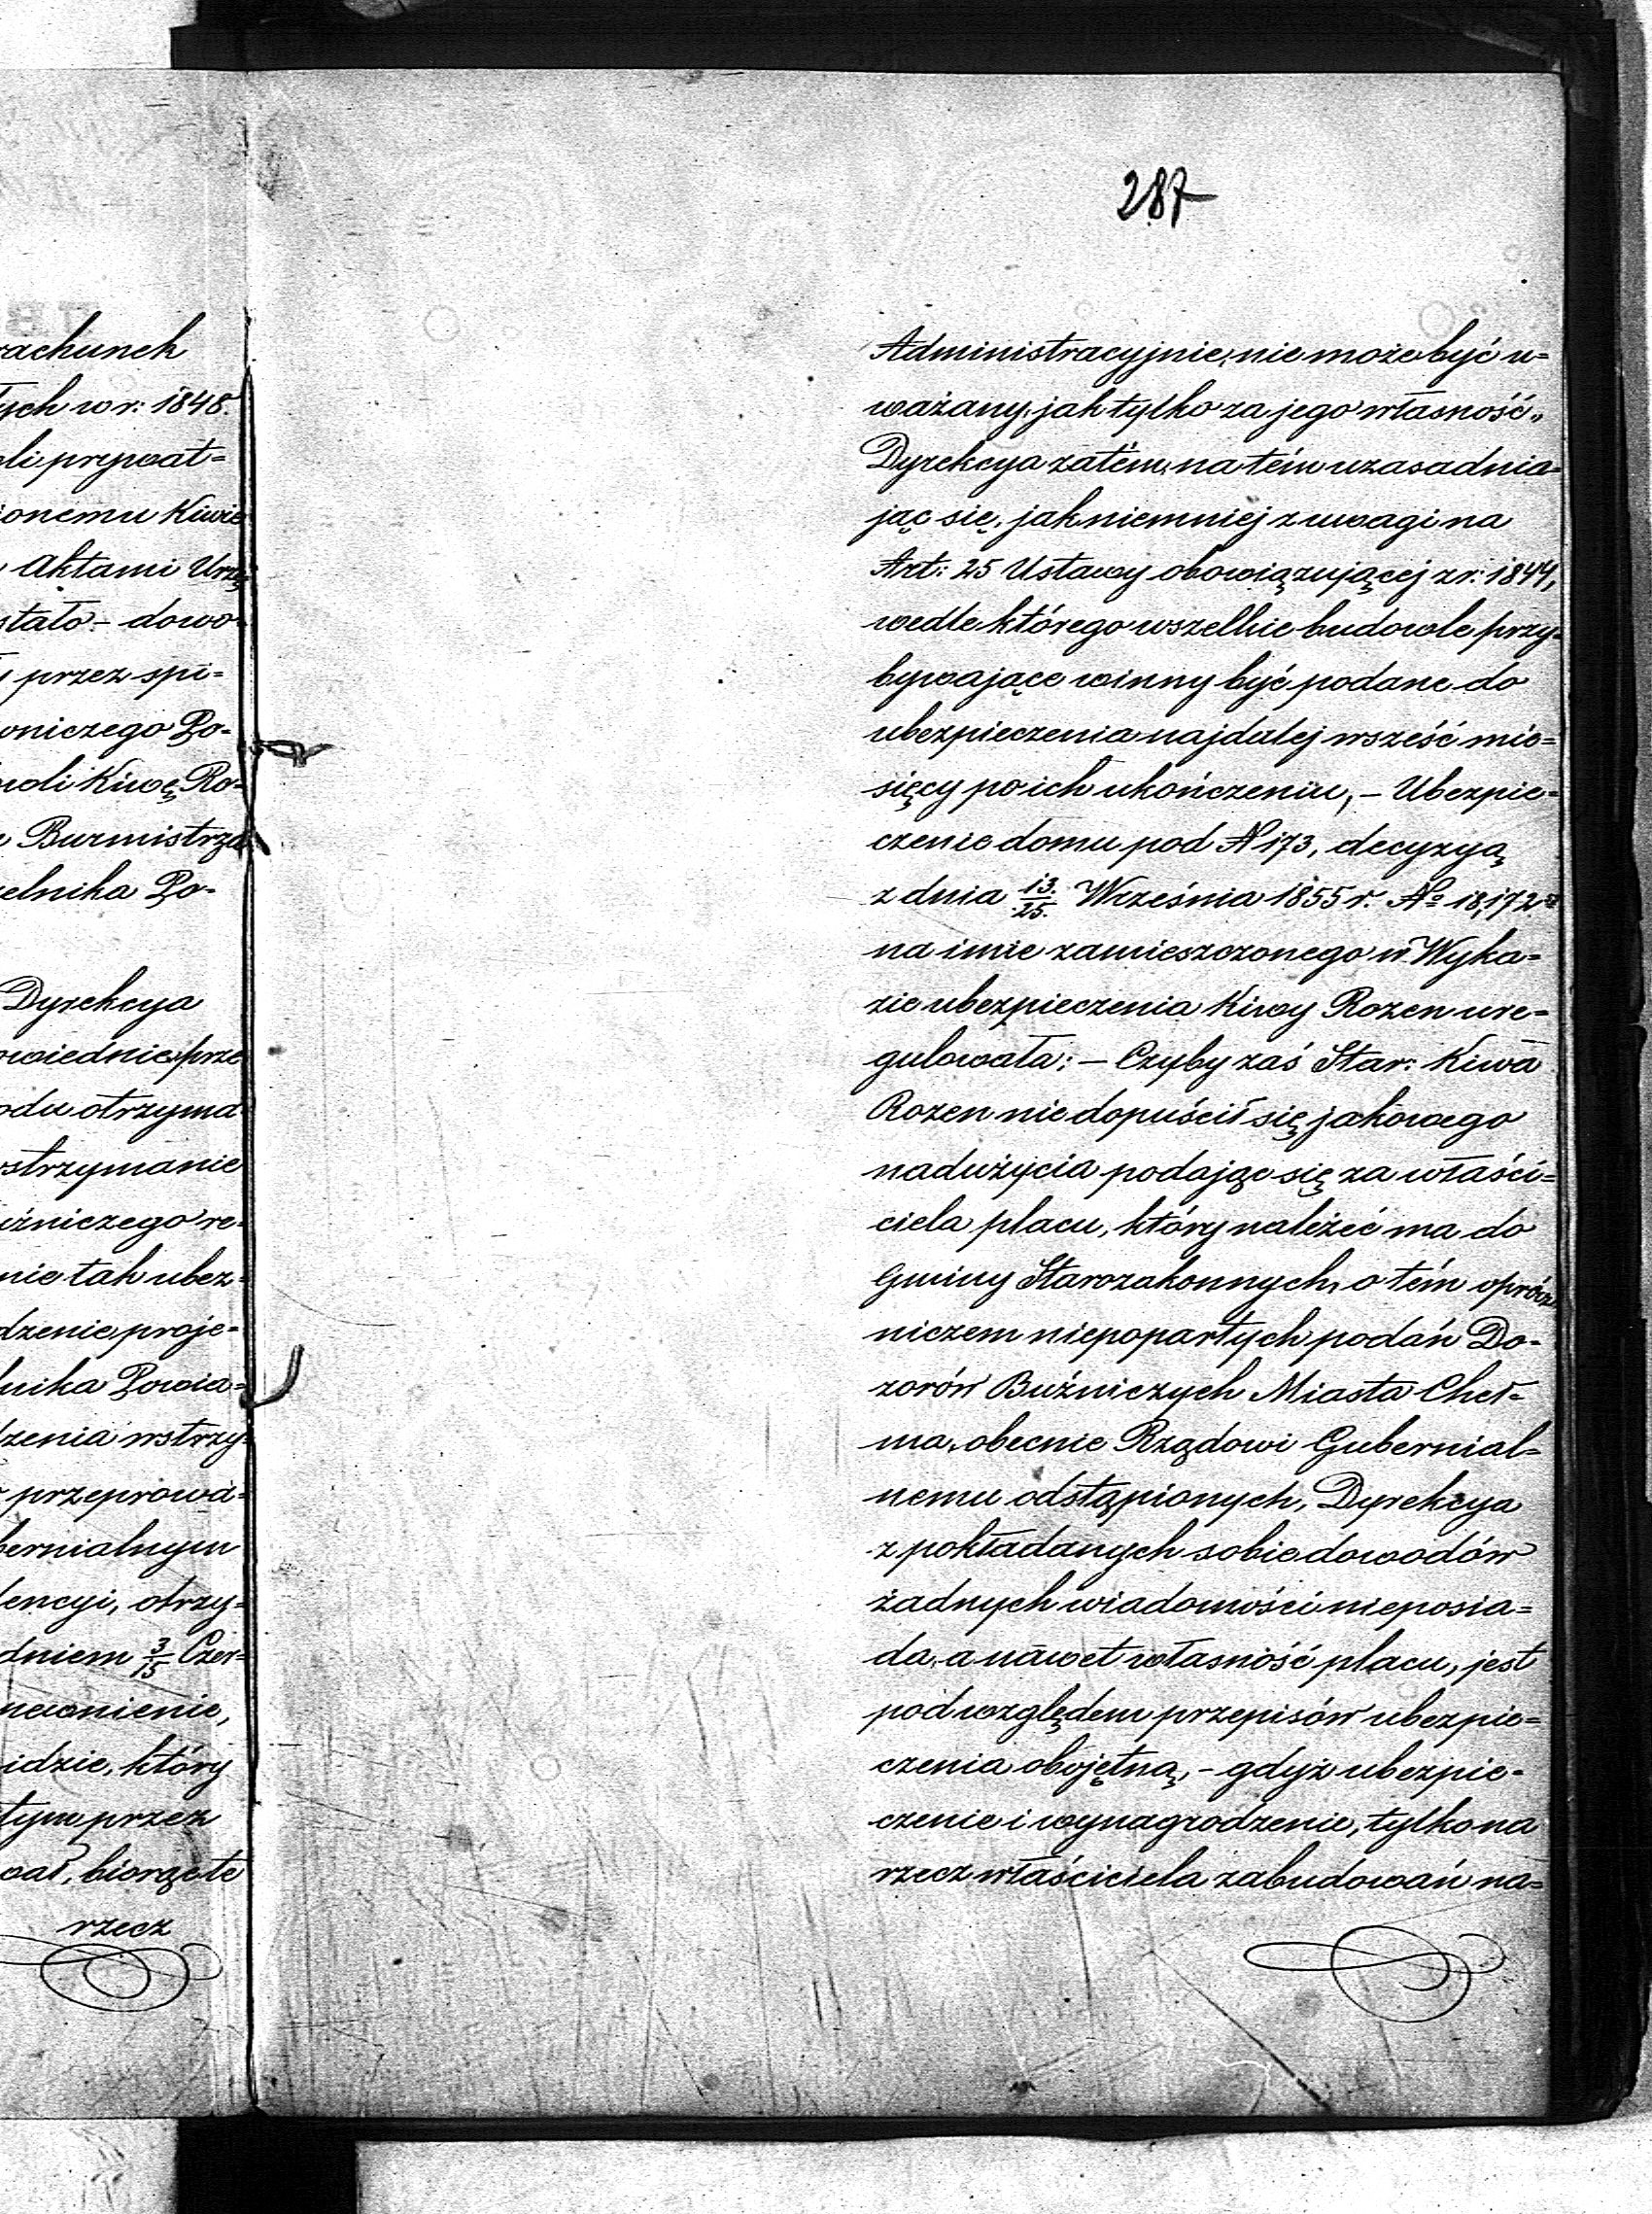 287
rachunek
tych w r: 1848.
li prywat=
ionemu Kiwie
Aktami Urzę
stało – dowo
przez spi=
niczego Po=
woli Kiwę Ro=
Burmistrza
elnika Po=
Dyrekcya
owiednie prze
odu otrzyma
strzymanie
źniczego re=
nie tak ubez=
dzenie proje=
lnika Powia=
dzenia wstrzy=
przeprowa=
bernialnym
dencyi, otrzy=
dniem 3/15 Czer=
ewnienie,
idzie, który
tym przez
wał, biorąc te
rzecz
Administracyjnie, nie może być u=
ważany, jak tylko za jego własność„
Dyrekcya zatem, na tém uzasadnia=
jąc się, jak niemniej z uwagi na
Art: 25 Ustawy obowiązującej z r: 1844,
wedle którego wszelkie budowle przy=
bywające winny być podane do
ubezpieczenia najdalej w sześć mie=
sięcy po ich ukończeniu, – Ubezpie=
czenie domu pod N 173, decyzyą
z dnia 13/25. Września 1855 r. No 18,172
na imie zamieszczonego w Wyka=
zie ubezpieczenia Kiwy Rozen ure=
gulowała; – Czyby zaś Star: Kiwa
Rozen nie dopuścił się jakowego
nadużycia podając się za właści=
ciela placu, który należeć ma do
Gminy Starozakonnych, o tém oprócz
niczem niepopartych podań Do=
zorów Bużniczych Miasta Cheł=
ma, obecnie Rządowi Gubernial=
nemu odstąpionych, Dyrekcya
z pokładanych sobie dowodów
żadnych wiadomości nieposia=
da, a nawet własność placu, jest
pod względem przepisów ubezpie=
czenia obojętną, – gdyż ubezpie=
czenie i wynagrodzenie, tylko na
rzecz właściciela zabudowań na=